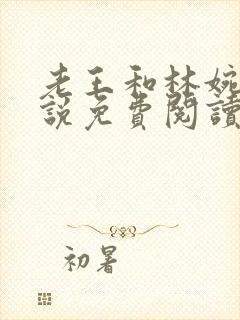 老王和林婉
說免費閱讀
初暑